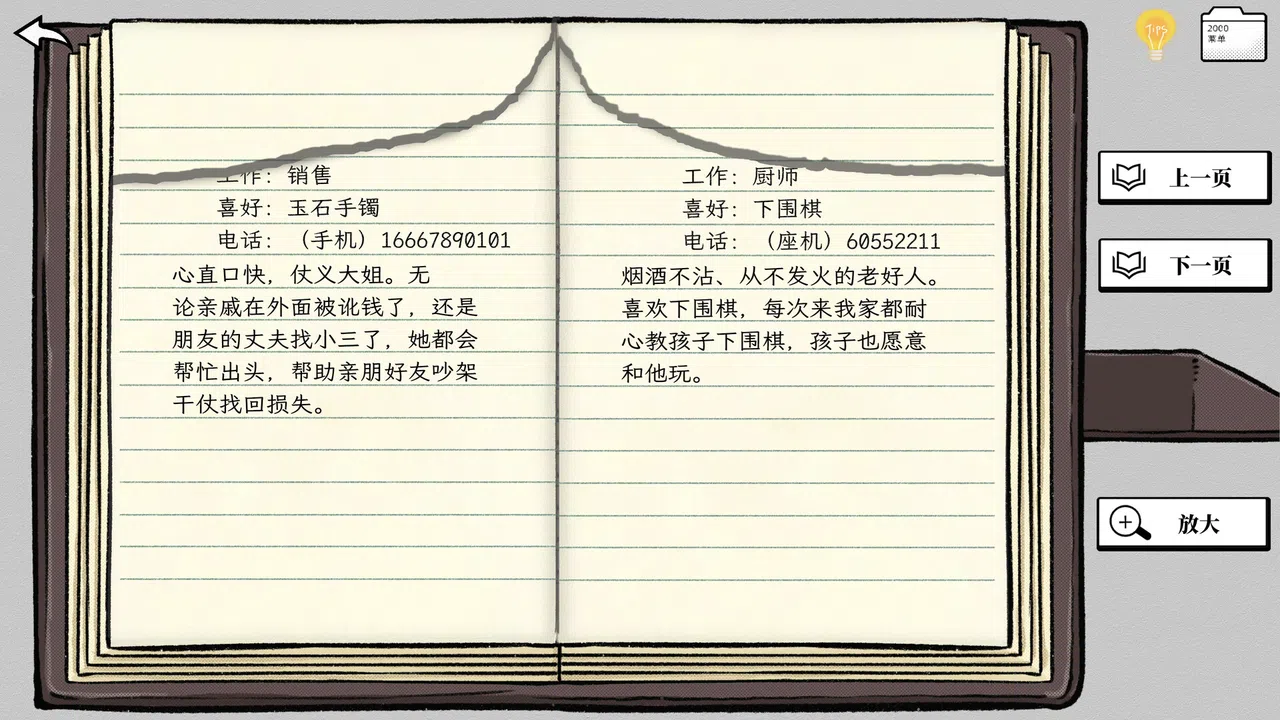 TIPS
2000
菜单
工作：销售
喜好：玉石手镯
电话：（手机）16667890101
心直口快，仗义大姐。无
论亲戚在外面被讹钱了，还是
朋友的丈夫找小三了，她都会
帮忙出头，帮助亲朋好友吵架
干仗找回损失。
工作：厨师
喜好：下围棋
电话：（座机）60552211
烟酒不沾、从不发火的老好人。
喜欢下围棋，每次来我家都耐
心教孩子下围棋，孩子也愿意
和他玩。
上一页
下一页
放大